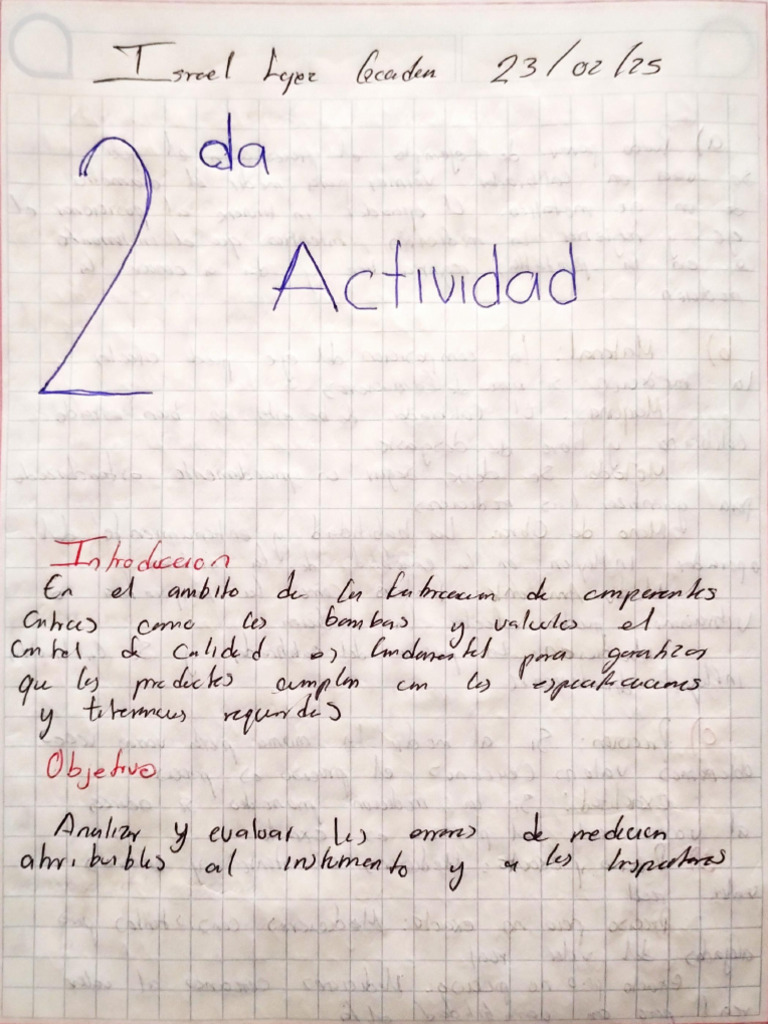 Israel Lopez 23/02/25
2da
Actividad
Introduccion
En el ambito de la fabricacion de componentes
criticos como las bombas y valvulas el
control de calidad es fundamental para garantizar
que los productos cumplan con las especificaciones
y tolerancias requeridas
Objetivo
Analizar y evaluar los errores de medicion
atribuibles al instrumento y a los Inspectores